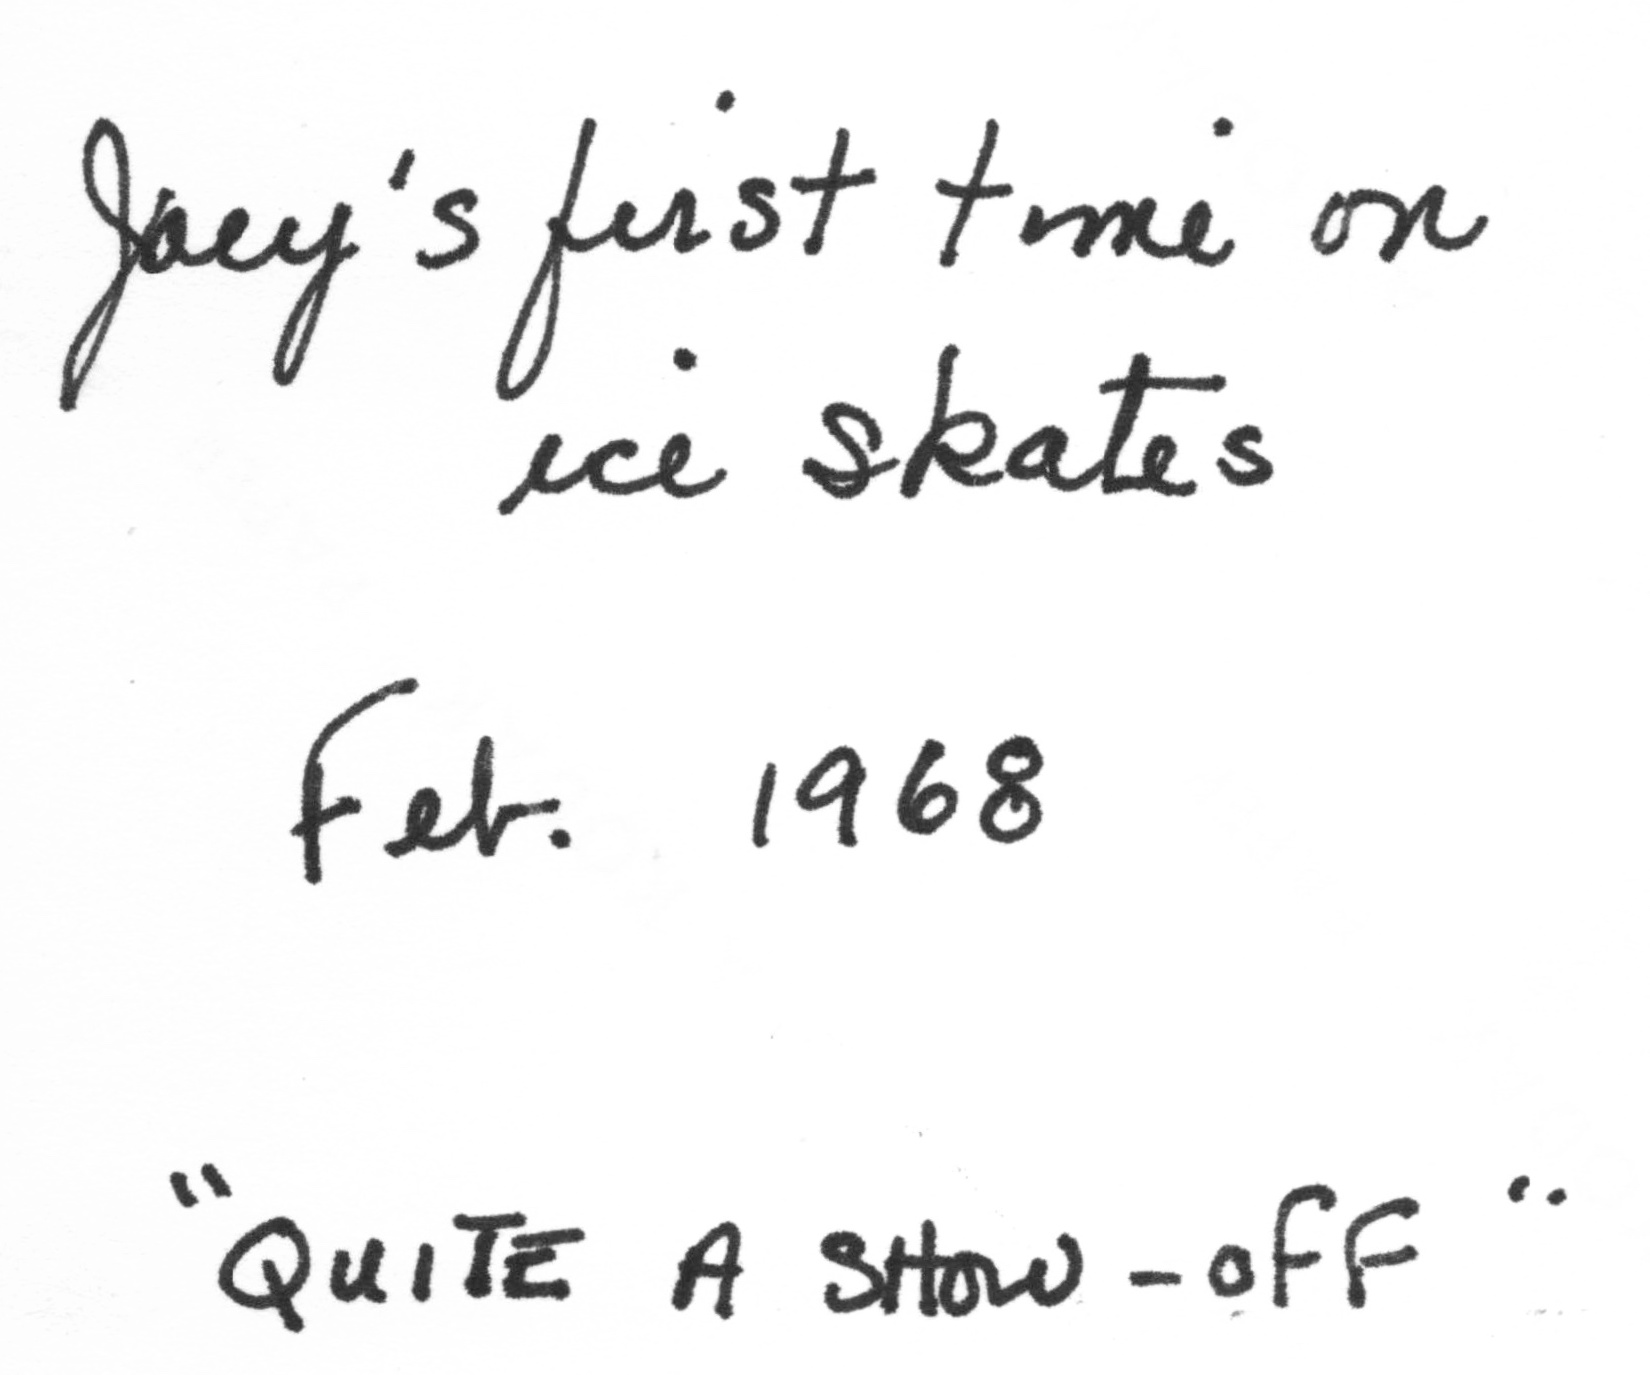 Joey's first time on
ice skates
Feb. 1968
"QUITE A SHOW-OFF"